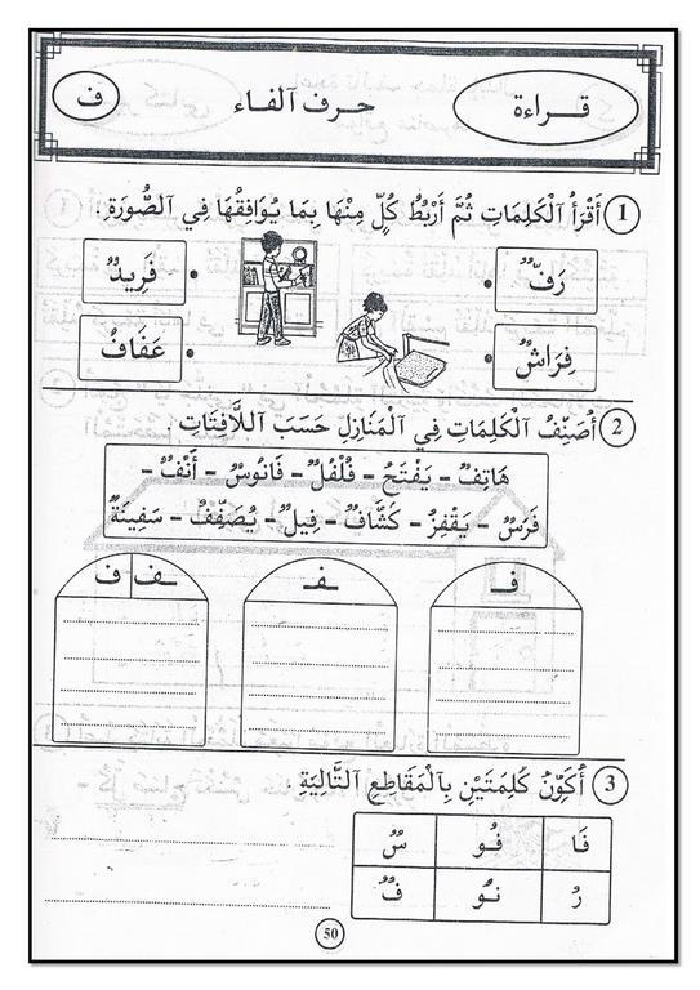 قـــراءة حـرف ٱلفـاء ف
1 أَقْرَأُ ٱلْكَلِمَاتِ ثُمَّ أَرْبُطُ كُلٍّ مِنْهَا بِمَا يُوَافِقُهَا فِي ٱلصُّورَةِ .
رَفٌّ • • فَرِيدٌ
فِرَاشٌ • • عَفَافُ
2 أُصَنِّفُ ٱلْكَلِمَاتِ فِي ٱلْمَنَازِلِ حَسَبَ ٱللَّافِتَاتِ .
هَاتِفٌ - يَفْتَحُ - فُلْفُلٌ - فَانُوسٌ - أَنْفٌ -
فَرَسٌ - يَقْفِزُ - كَشَّافٌ - فِيلٌ - يُصَفِّفُ - سَفِينَةٌ
فـ ـفـ ـف ف
3 أُكَوِّنُ كَلِمَتَيْنِ بِٱلْمَقَاطِعِ ٱلتَّالِيَةِ .
فَا فُـو سٌ
رُ نُـو فٌ
50